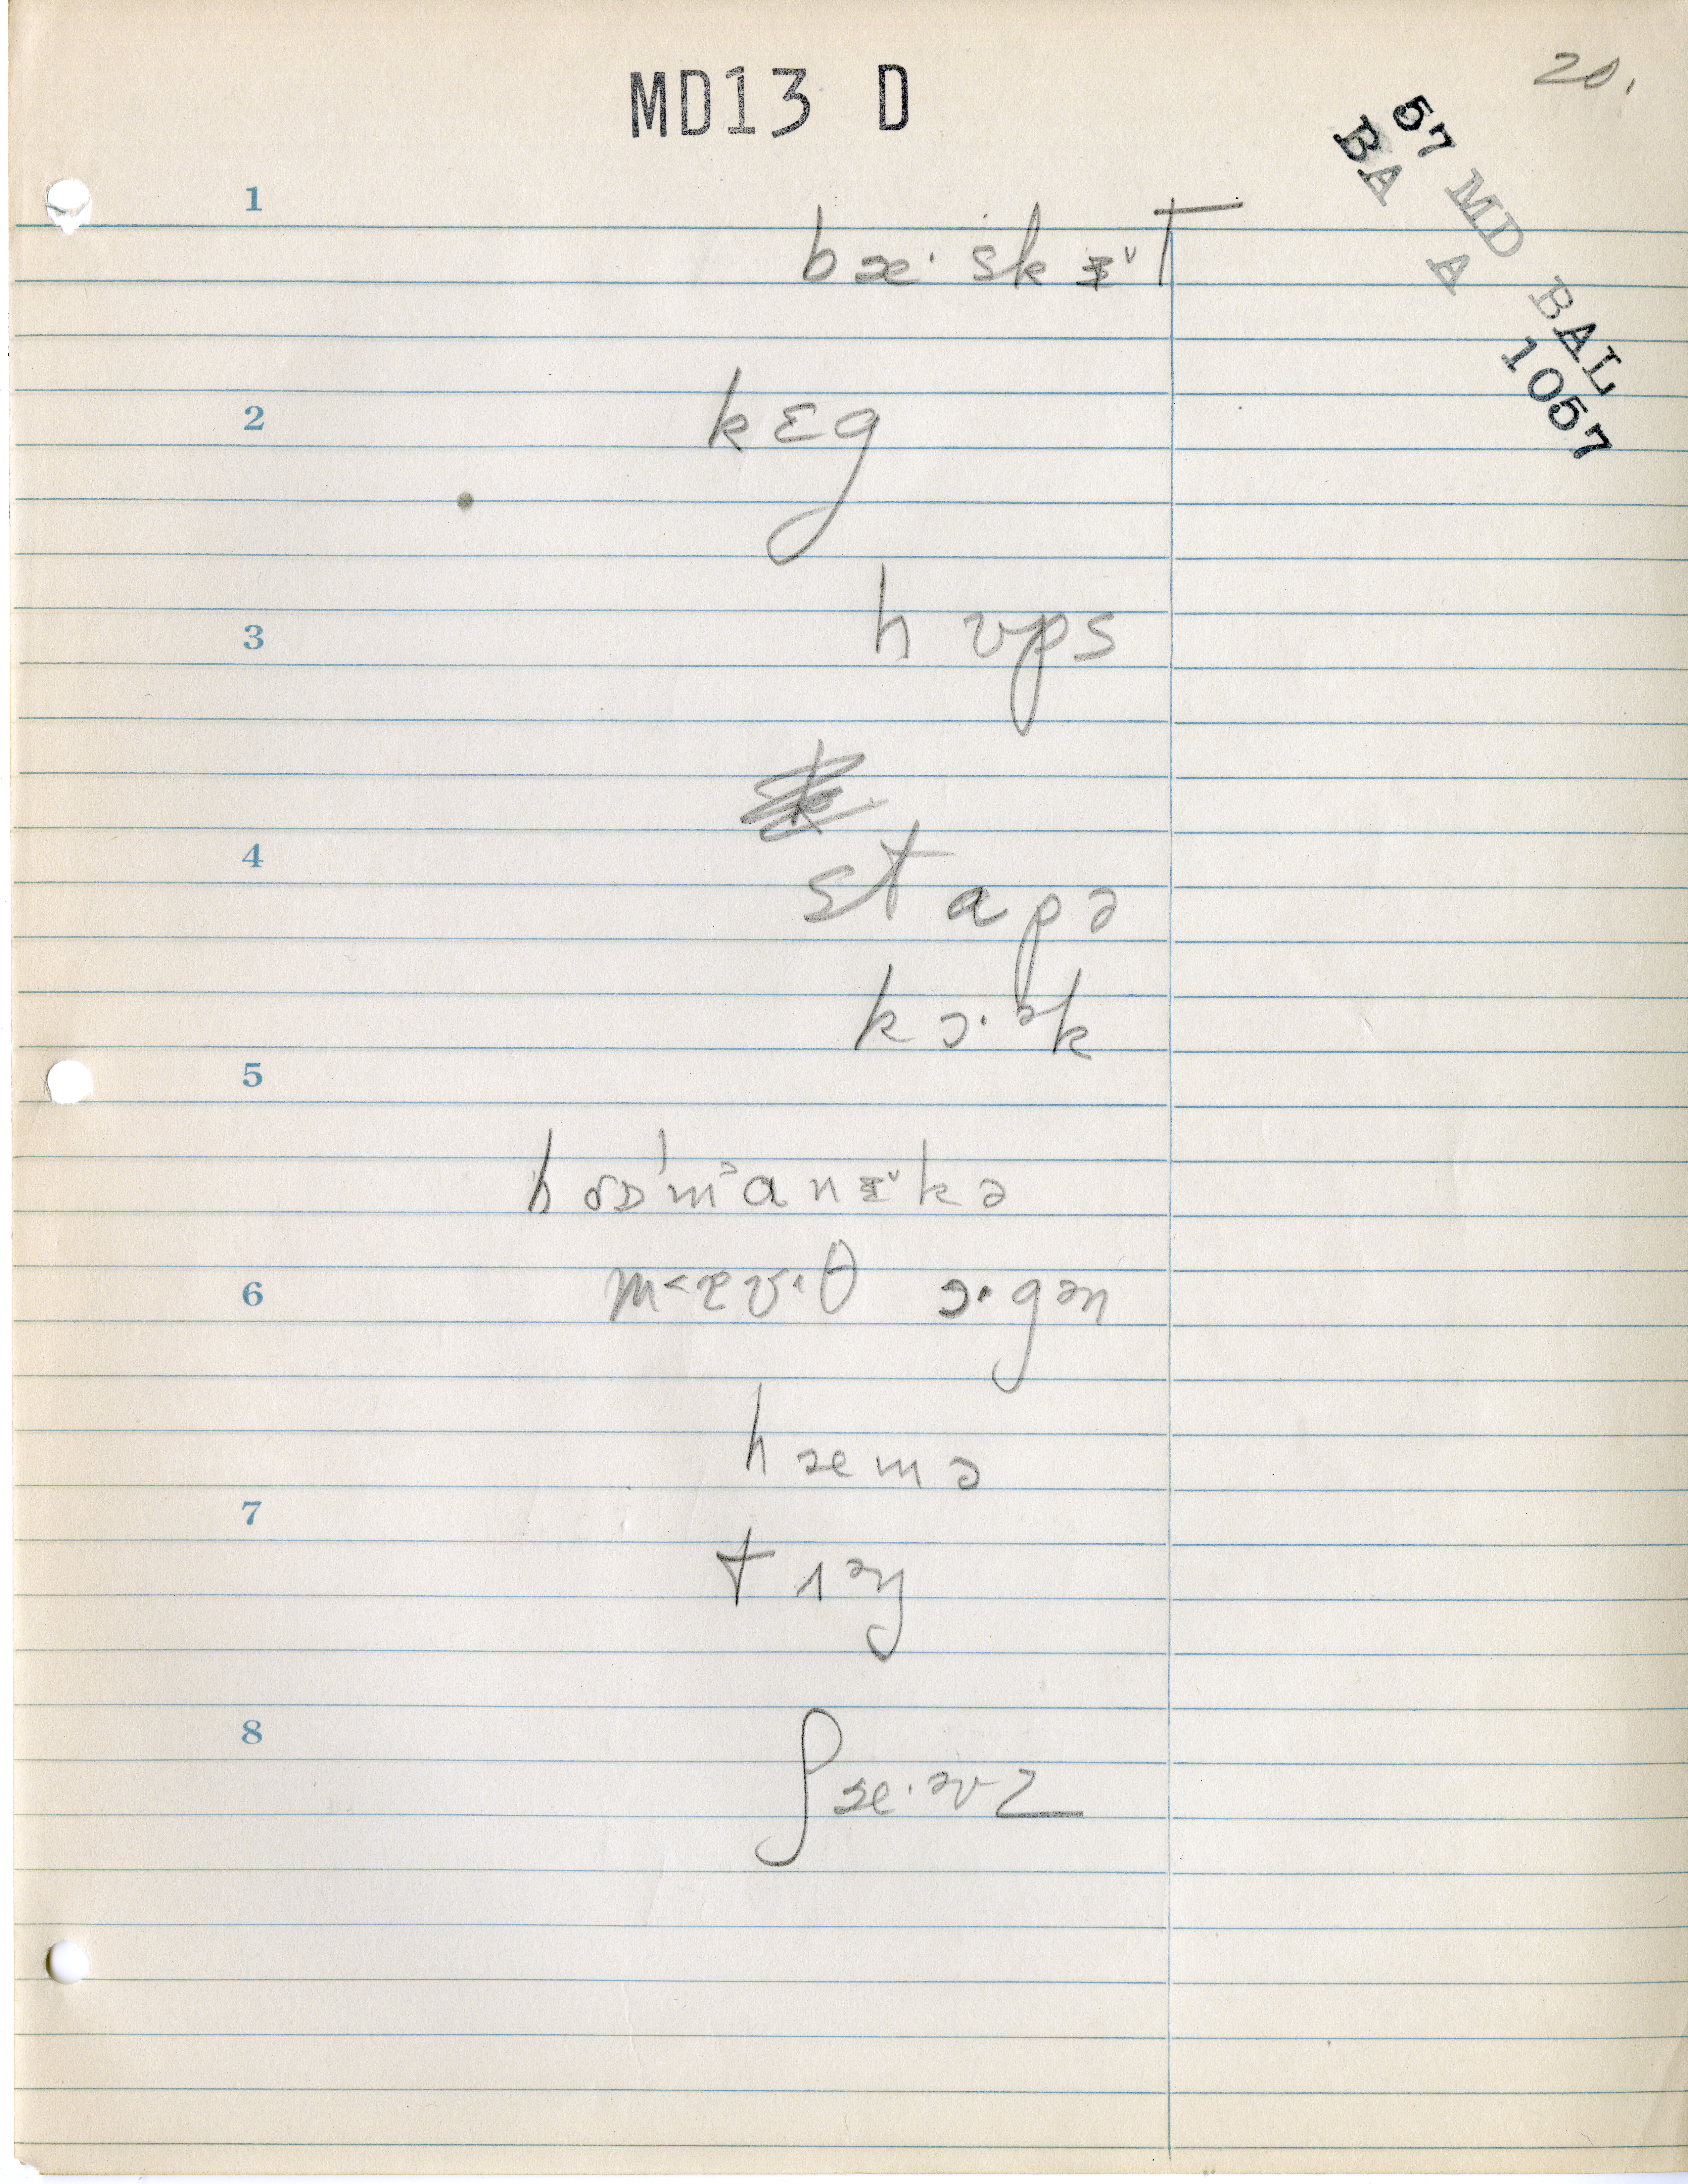 MD13 D
20.
57 MD BAL
BA A 1057
1
bæ· skᵻ˅T
2
kɛg
3
hʊps
4
stapə
kɔ·ᵊk
5
mˈan ᵻ˅kə
6
m˂æʊ·θ ɔ·gən
hæmə
7
8
ʃæ·əvz